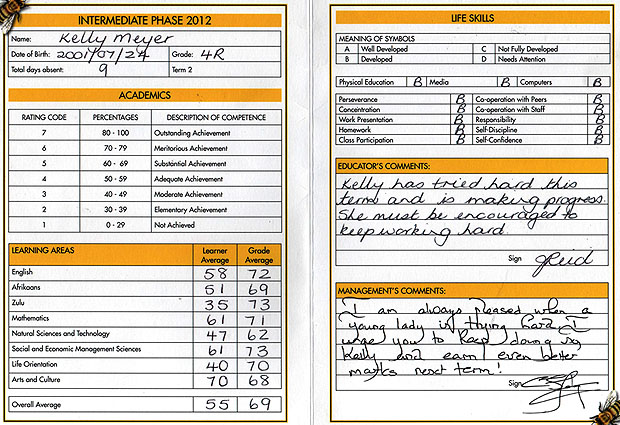 INTERMEDIATE PHASE 2012
Name: Kelly Meyer
Date of Birth: 2001/07/24 Grade: 4R
Total days absent: 9 Term 2
ACADEMICS
RATING CODE PERCENTAGES DESCRIPTION OF COMPETENCE
7 80 - 100 Outstanding Achievement
6 70 - 79 Meritorious Achievement
5 60 - 69 Substantial Achievement
4 50 - 59 Adequate Achievement
3 40 - 49 Moderate Achievement
2 30 - 39 Elementary Achievement
1 0 - 29 Not Achieved
LEARNING AREAS Learner Average Grade Average
English 58 72
Afrikaans 51 69
Zulu 35 73
Mathematics 61 71
Natural Sciences and Technology 47 62
Social and Economic Management Sciences 61 73
Life Orientation 40 70
Arts and Culture 70 68
Overall Average 55 69
LIFE SKILLS
MEANING OF SYMBOLS
A Well Developed C Not Fully Developed
B Developed D Needs Attention
Physical Education B Media B Computers B
Perseverance B Co-operation with Peers B
Concentration B Co-operation with Staff B
Work Presentation B Responsibility B
Homework B Self-Discipline B
Class Participation B Self-Confidence B
EDUCATOR'S COMMENTS:
Kelly has tried hard this
term and is making progress.
She must be encouraged to
keep working hard.
Sign
MANAGEMENT'S COMMENTS:
I am always pleased when a
young lady is trying hard. I
urge you to keep doing so,
Kelly and earn even better
marks next term!
Sign